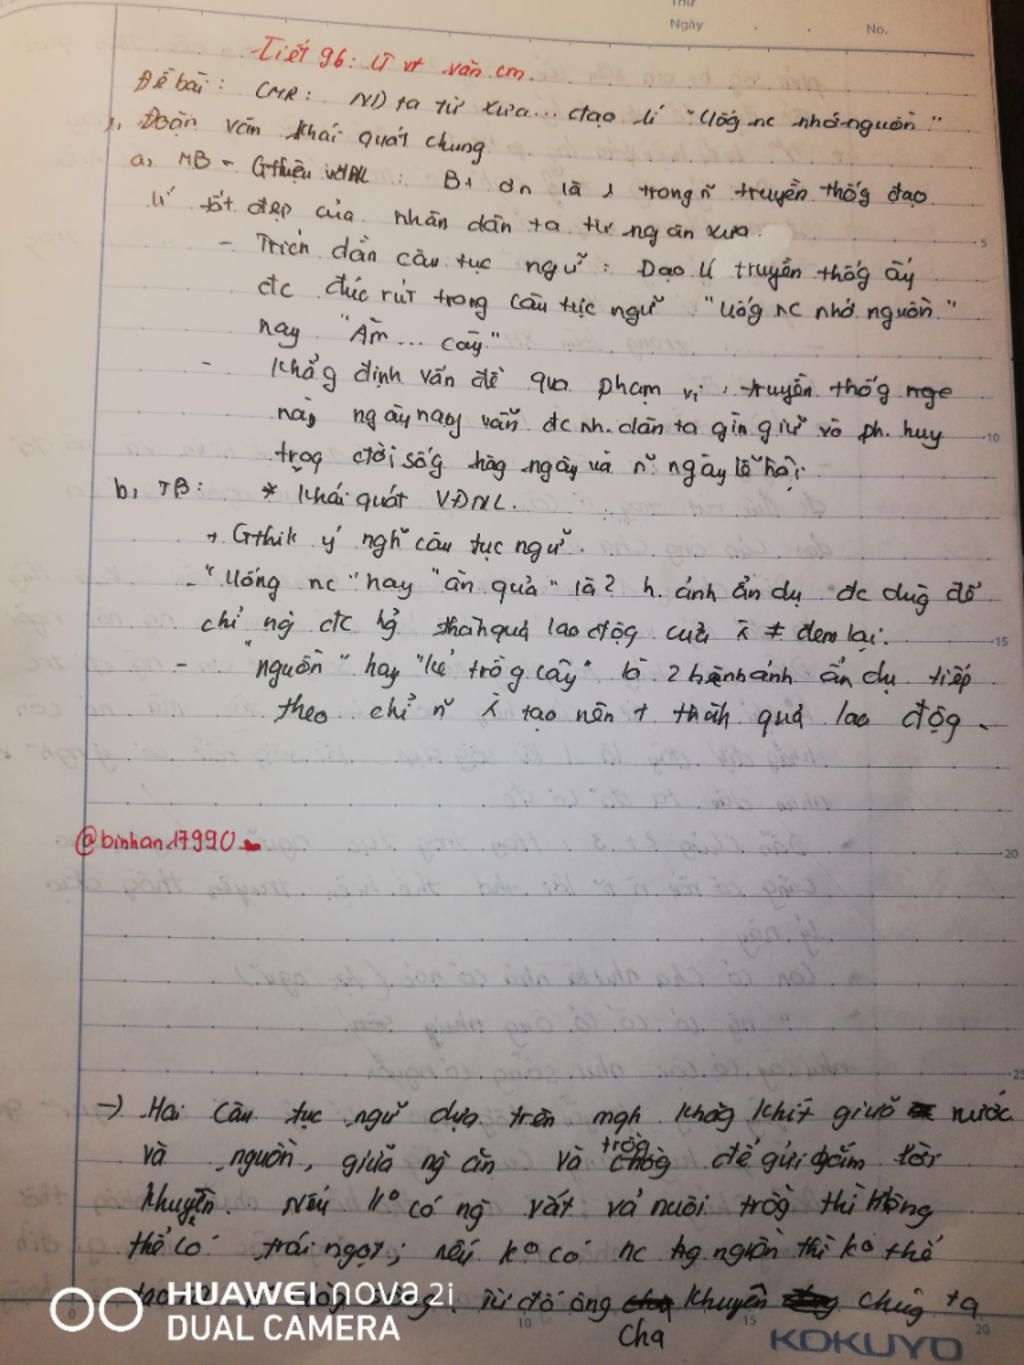 Thứ
Ngày . . No.
Tiết 96: LT vt văn cm.
Đề bài: CMR: ND ta từ xưa... đạo lí "Uốg nc nhớ nguồn."
1, Đoạn văn khái quát chung.
a, MB - Gthiệu VĐNL : Bt ơn là 1 trong ~ truyền thốg đạo
lí tốt đẹp của nhân dân ta từ ngàn xưa.
- Trích dẫn câu tục ngữ : Đạo lí truyền thốg ấy
đc đúc rút trong câu tục ngữ "Uốg nc nhớ nguồn"
hay "Ăn... cây"
- Khẳg định vấn đề qua phạm vi : truyền thốg
này ngày nay vẫn đc nh. dân ta gìn giữ và ph. huy
trog đời sốg hàg ngày và ~ ngày lễ hội.
b, TB: * Khái quát VĐNL.
+ Gthik ý ngh câu tục ngữ.
- "Uống nc" hay "ăn quả" là 2 h. ảnh ẩn dụ đc dùg để
chỉ ng đc hg thành quả lao độg của ≠ đem lại.
- "nguồn" hay "kẻ trồg cây" là 2 hình ảnh ẩn dụ tiếp
theo chỉ ~ tạo nên thàh quả lao độg.
@binhan17990
-> Hai câu tục ngữ dựa trên mqh khăg khít giữa nước
và nguồn, giữa ng ăn và trồg để gửi gắm lời
khuyên. Nếu k° có ng vất vả nuôi trồg thì không
thể có trái ngọt; nếu k° có nc tg nguồn thì k° thể
sông. Từ đó ông cha khuyên chúg ta
5
10
15
20
25
0
10
15
20
HUAWEI nova 2i
DUAL CAMERA
KOKUYO